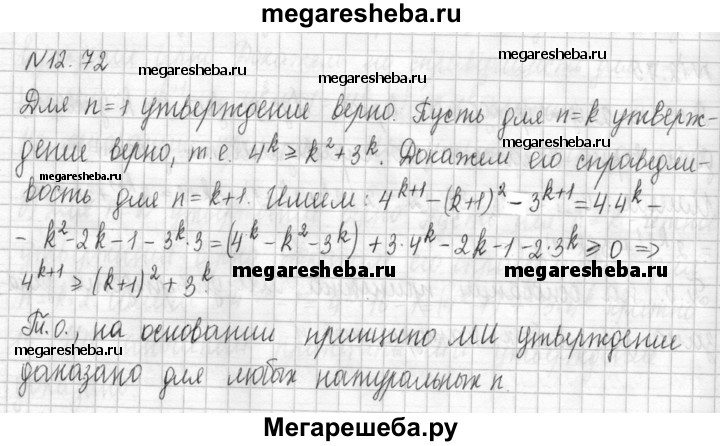 megaresheba.ru
N12.72
megaresheba.ru
megaresheba.ru
Для n=1 утверждение верно. Пусть для n=k утверж-
megaresheba.ru
дение верно, т.е. 4^k ≥ k^2+3^k. Докажем его справедли-
megaresheba.ru
вость для n=k+1. Имеем: 4^{k+1}-(k+1)^2-3^{k+1}=4·4^k-
- k^2-2k-1-3^k·3=(4^k-k^2-3^k)+3·4^k-2k-1-2·3^k ≥ 0 ⇒
megaresheba.ru
megaresheba.ru
4^{k+1} ≥ (k+1)^2+3^k.
Т.о., на основании принципо МИ утверждение
megaresheba.ru
megaresheba.ru
доказано для любых натуральных n.
Мегарешеба.ру